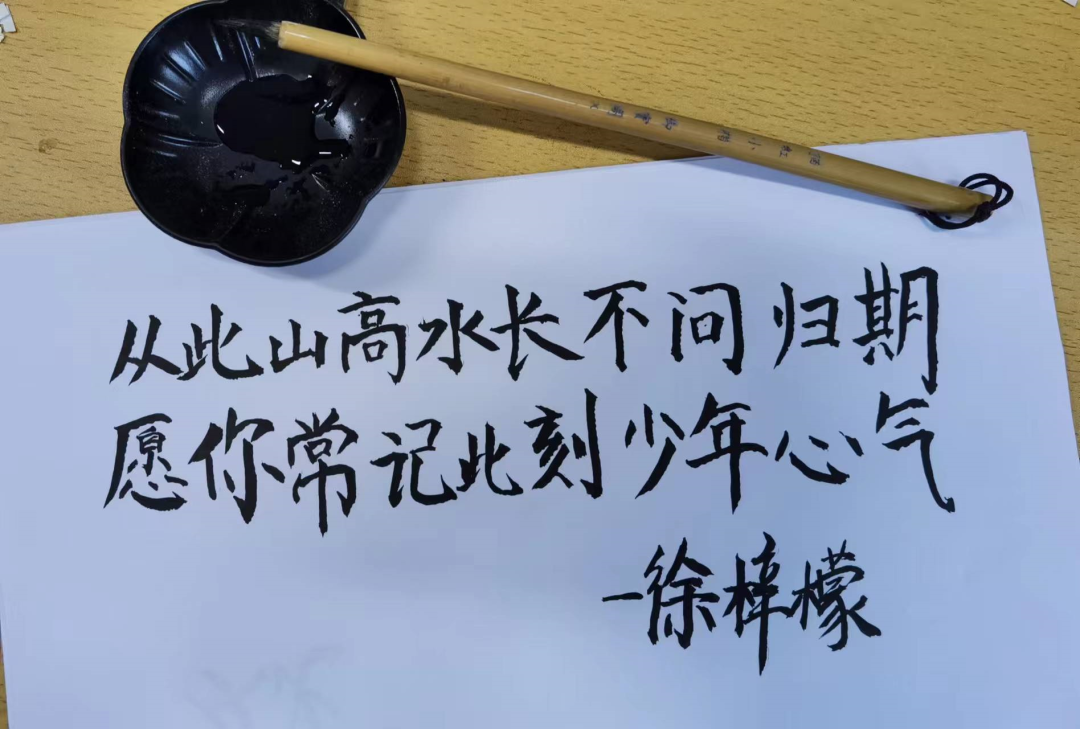 从此山高水长不问归期
愿你常记此刻少年心气
-徐梓檬